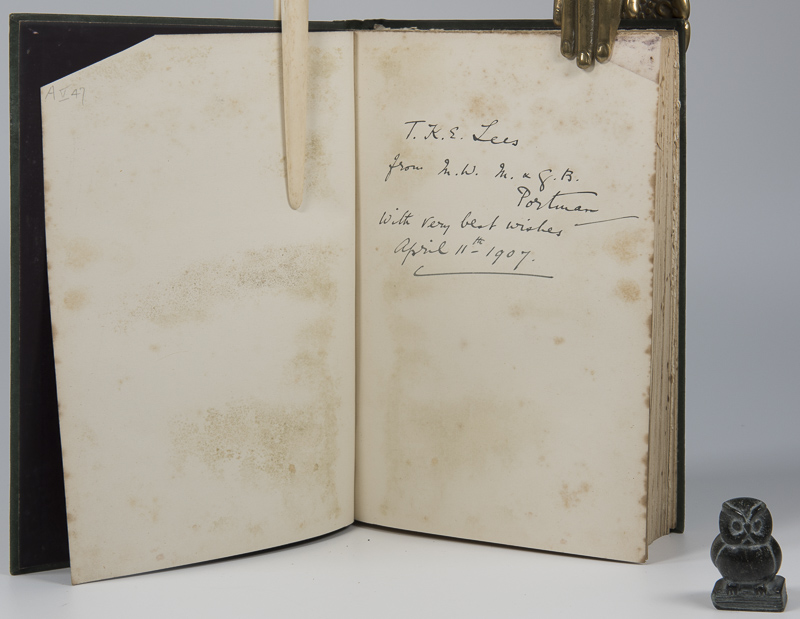 A V 47
T. K. E. Lees
from M. W. M. & G. B.
Portman
With very best wishes
April 11th 1907.